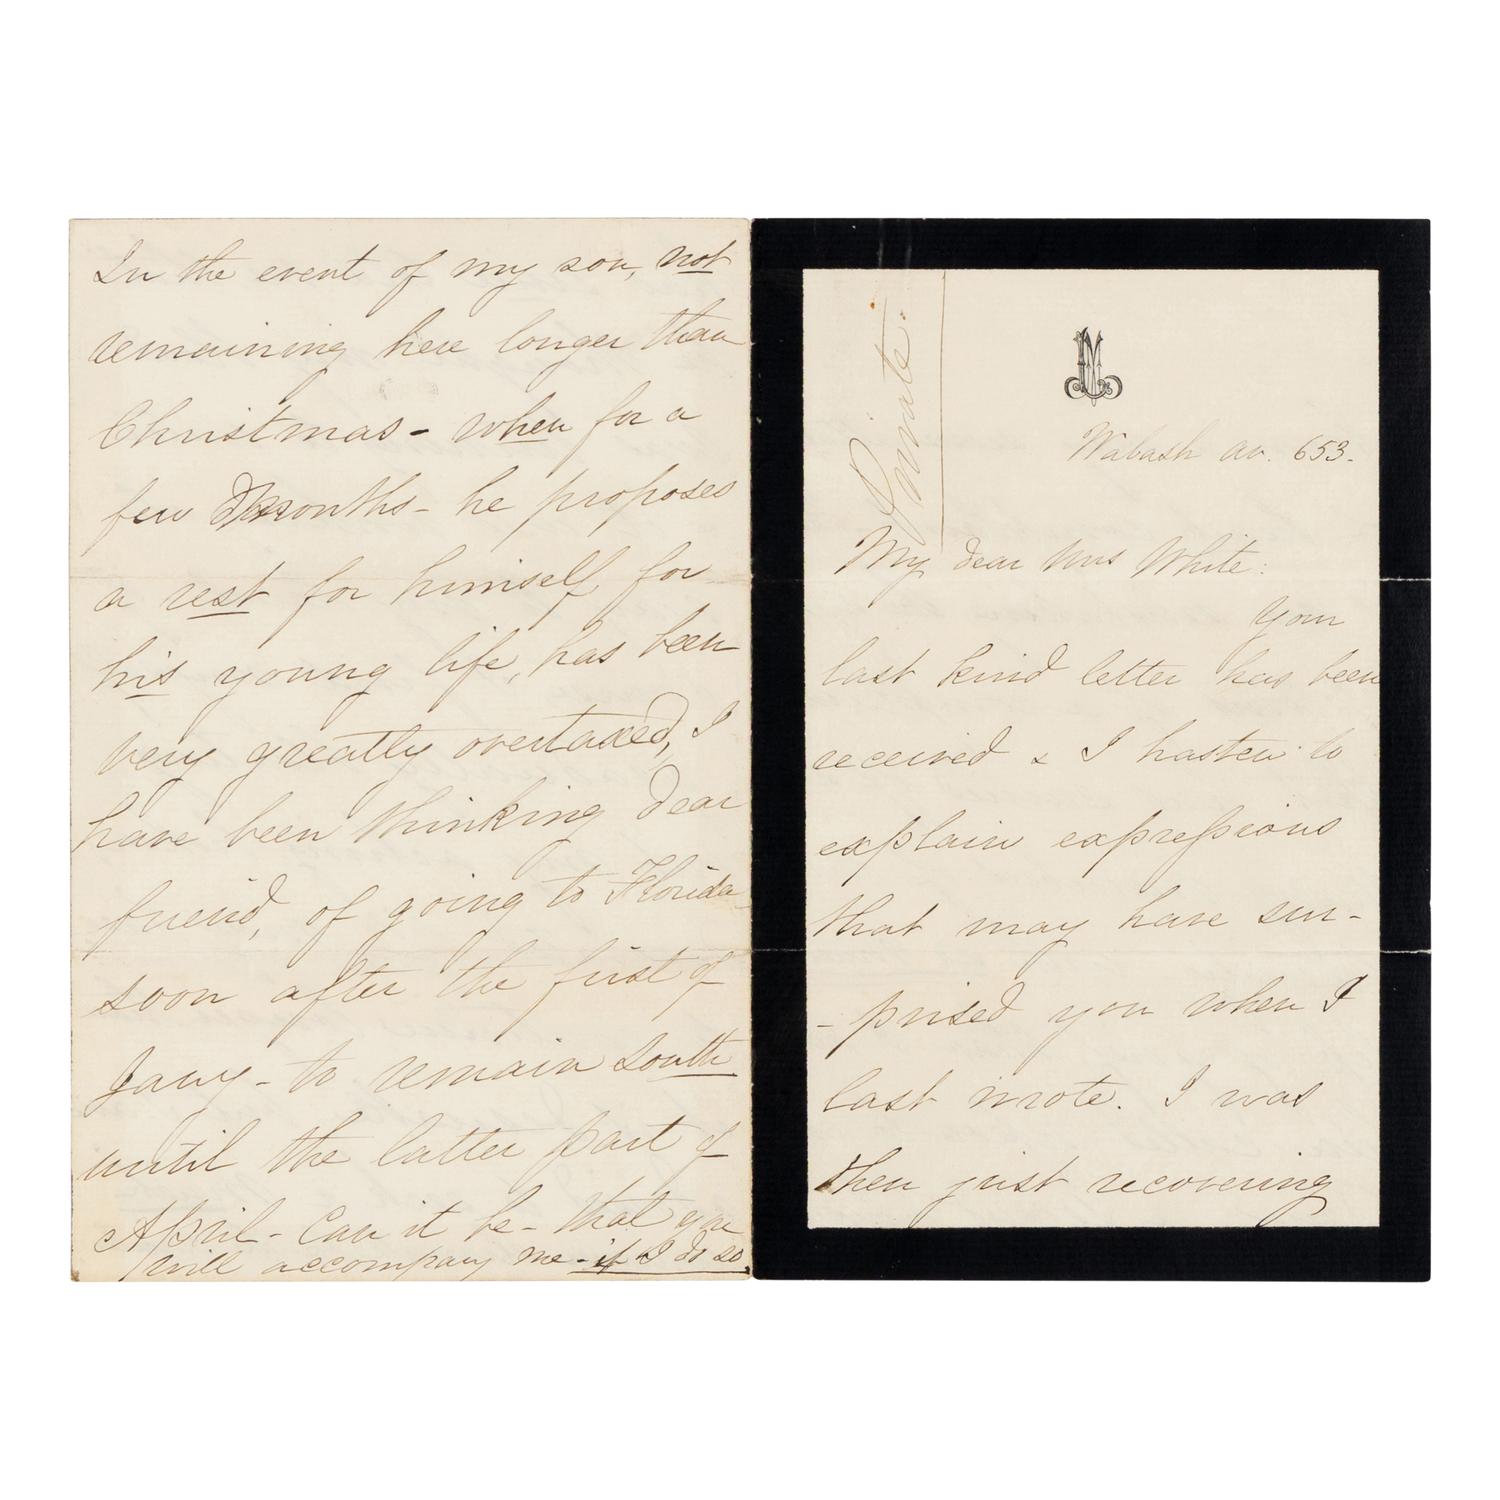 In the event of my son, not
remaining here longer than
Christmas - when for a
few months - he proposes
a rest for himself, for
his young life, has been
very greatly overtaxed, I
have been thinking dear
friend, of going to Florida
soon after the first of
Jany - to remain South
until the latter part of
April - Can it be - that you
will accompany me - if I do so,
Private.
Wabash av. 653.
My dear Mrs White:
Your
last kind letter has been
received & I hasten to
explain expressions
that may have sur-
- prised you when I
last wrote. I was
then just recovering